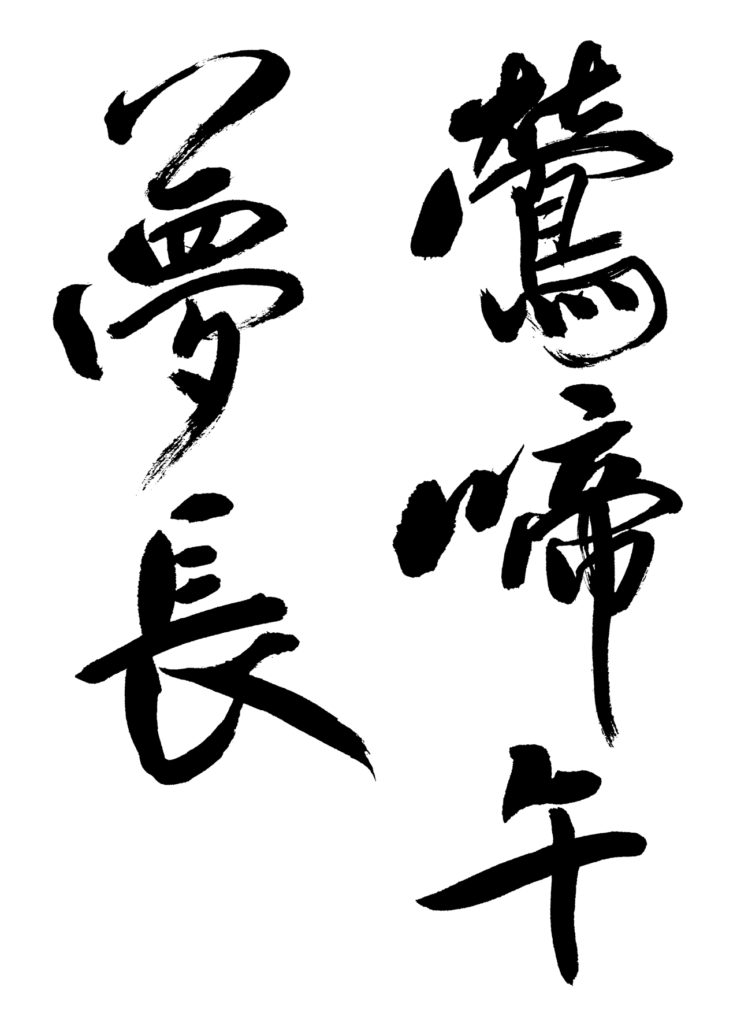 鶯啼午
夢長